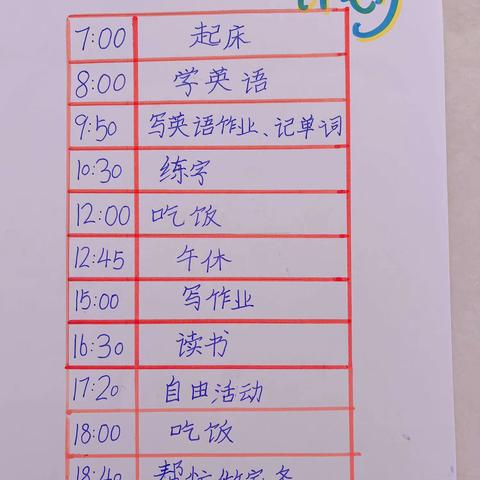 7:00 起床
8:00 学英语
9:50 写英语作业、记单词
10:30 练字
12:00 吃饭
12:45 午休
15:00 写作业
16:30 读书
17:20 自由活动
18:00 吃饭
18:40 帮忙做家务